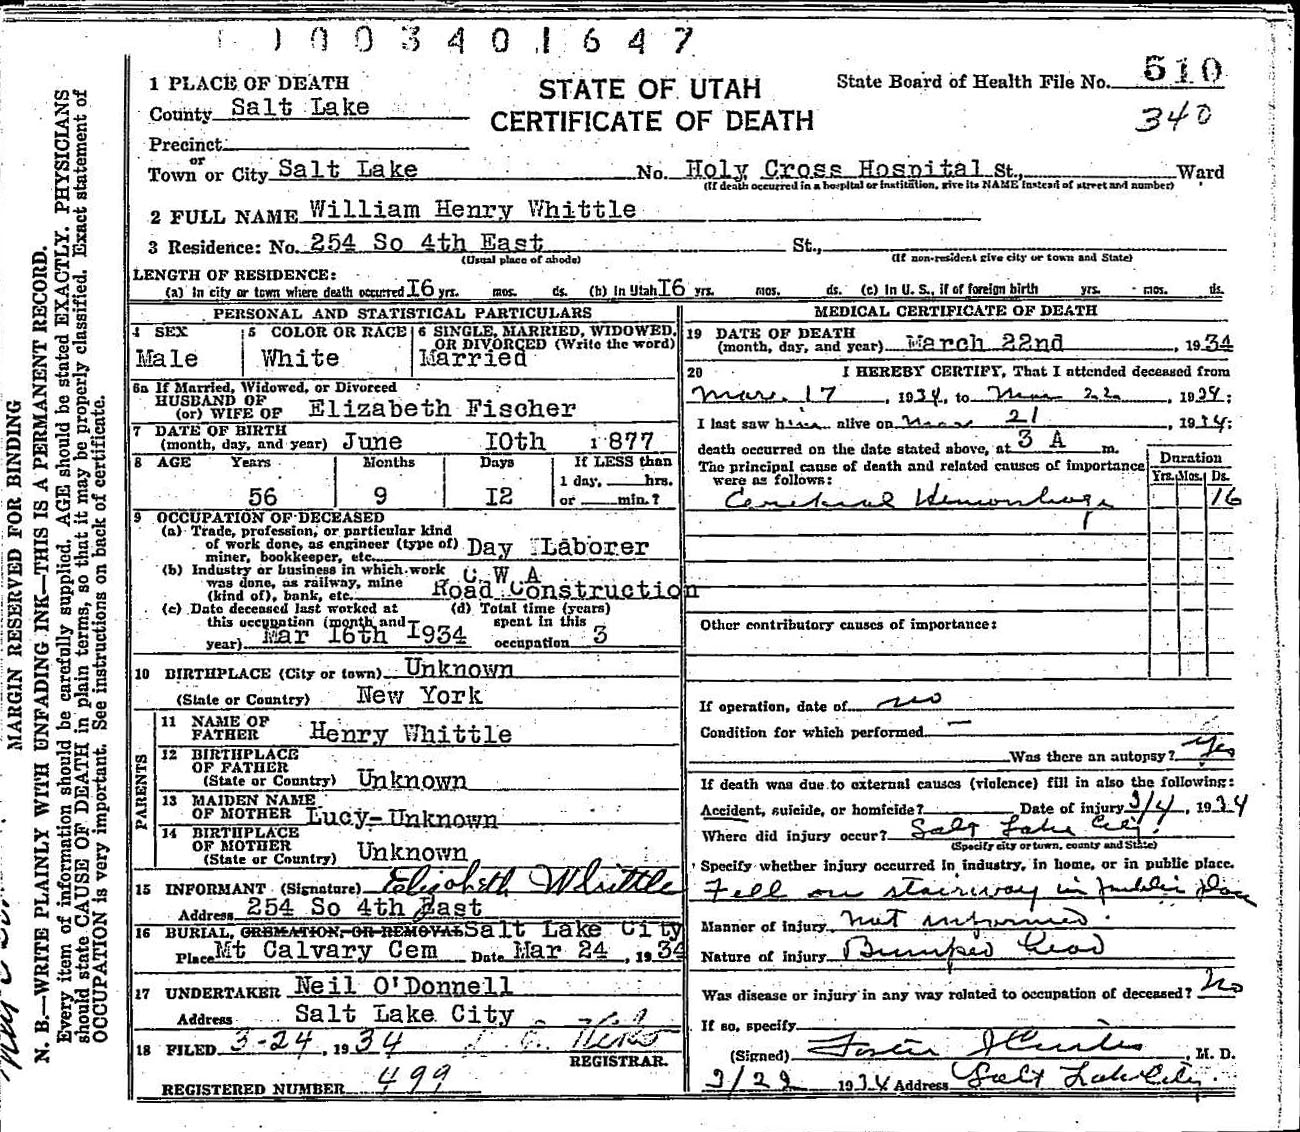 1003401647
1 PLACE OF DEATH
STATE OF UTAH
CERTIFICATE OF DEATH
State Board of Health File No. 510
340
County Salt Lake
Precinct
or
Town or City Salt Lake No. Holy Cross Hospital St., Ward
(If death occurred in a hospital or institution, give its NAME instead of street and number)
2 FULL NAME William Henry Whittle
3 Residence: No. 254 So 4th East St.,
(Usual place of abode) (If non-resident give city or town and State)
LENGTH OF RESIDENCE:
(a) In city or town where death occurred 16 yrs. mos. ds. (b) In Utah 16 yrs. mos. ds. (c) In U. S., if of foreign birth yrs. mos. ds.
PERSONAL AND STATISTICAL PARTICULARS
4 SEX
Male
5 COLOR OR RACE
White
6 SINGLE, MARRIED, WIDOWED,
OR DIVORCED (Write the word)
Married
6a If Married, Widowed, or Divorced
HUSBAND OF
(or) WIFE OF Elizabeth Fischer
7 DATE OF BIRTH
(month, day, and year) June 10th 1877
8 AGE Years Months Days If LESS than
1 day, hrs.
56 9 12 or min.?
9 OCCUPATION OF DECEASED
(a) Trade, profession, or particular kind
of work done, as engineer (type of)
miner, bookkeeper, etc. Day Laborer
(b) Industry or business in which work
was done, as railway, mine
(kind of), bank, etc. C W A
Road Construction
(c) Date deceased last worked at
this occupation (month and
year) Mar 16th 1934
(d) Total time (years)
spent in this
occupation 3
10 BIRTHPLACE (City or town) Unknown
(State or Country) New York
PARENTS
11 NAME OF
FATHER Henry Whittle
12 BIRTHPLACE
OF FATHER
(State or Country) Unknown
13 MAIDEN NAME
OF MOTHER Lucy-Unknown
14 BIRTHPLACE
OF MOTHER
(State or Country) Unknown
15 INFORMANT (Signature) Elizabeth Whittle
Address 254 So 4th East
16 BURIAL, CREMATION, OR REMOVAL Salt Lake City
Place Mt Calvary Cem Date Mar 24, 1934
17 UNDERTAKER Neil O'Donnell
Address Salt Lake City
18 FILED 3-24, 1934
REGISTRAR.
REGISTERED NUMBER 499
MEDICAL CERTIFICATE OF DEATH
19 DATE OF DEATH
(month, day, and year) March 22nd, 1934
20 I HEREBY CERTIFY, That I attended deceased from
Mar. 17, 1934, to Mar 22, 1934;
I last saw him alive on Mar 21, 1934;
death occurred on the date stated above, at 3 A m.
The principal cause of death and related causes of importance
were as follows:
Duration
Yrs. Mos. Ds.
Cerebral Hemorrhage 16
Other contributory causes of importance:
If operation, date of no
Condition for which performed —
Was there an autopsy? Yes
If death was due to external causes (violence) fill in also the following:
Accident, suicide, or homicide? Date of injury 3/4, 1934
Where did injury occur? Salt Lake City.
(Specify city or town, county and State)
Specify whether injury occurred in industry, in home, or in public place.
Fell on stairway in public place
Manner of injury not informed.
Nature of injury Bumped head
Was disease or injury in any way related to occupation of deceased? No
If so, specify
(Signed) Foster J Curtis, M. D.
3/22 1934 Address Salt Lake City.
MARGIN RESERVED FOR BINDING
N. B.—WRITE PLAINLY WITH UNFADING INK—THIS IS A PERMANENT RECORD.
Every item of information should be carefully supplied. AGE should be stated EXACTLY. PHYSICIANS
should state CAUSE OF DEATH in plain terms, so that it may be properly classified. Exact statement of
OCCUPATION is very important. See instructions on back of certificate.